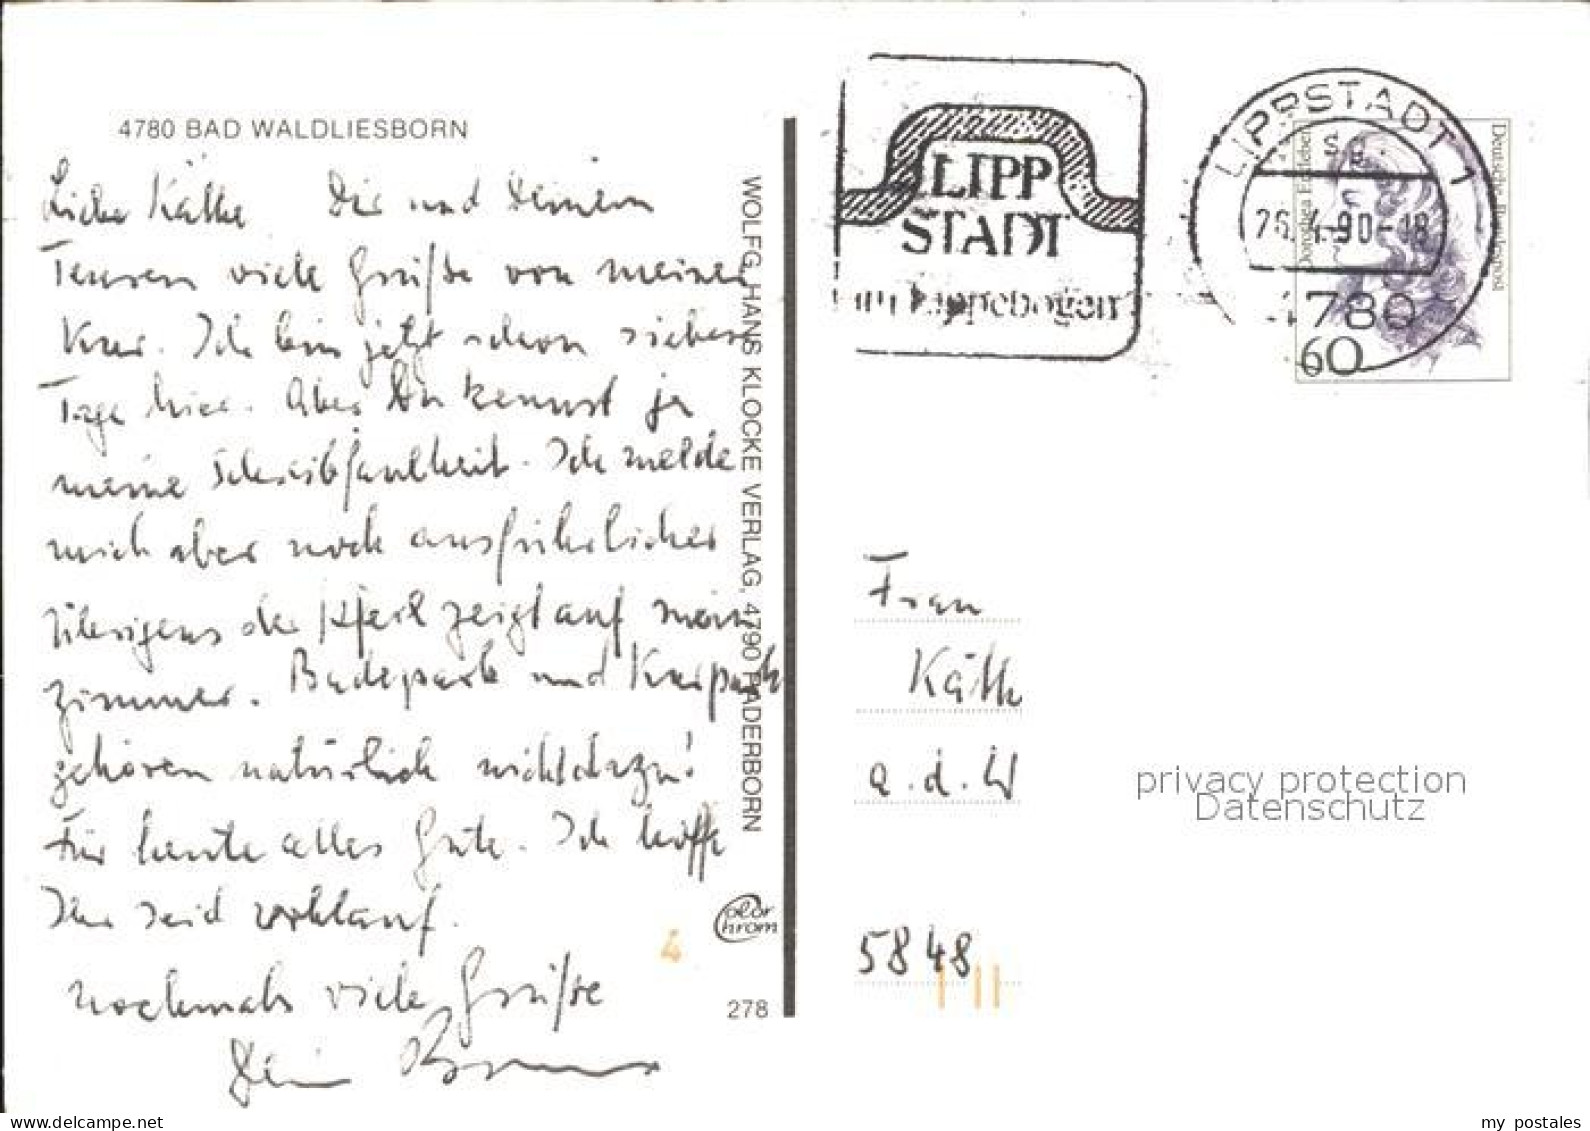 4780 BAD WALDLIESBORN
Liebe Käthe Dir und Deinem
Teuren viele Grüße von meiner
Kur. Ich bin jetzt schon sieben
Tage hier. Aber Du kennst ja
meine Schreibfaulheit. Ich melde
mich aber noch ausführlicher
übrigens der Pfeil zeigt auf mein
Zimmer. Badepark und Kurpark
gehören natürlich nicht dazu!
Für heute alles Gute. Ich hoffe
Ihr seid wohlauf.
nochmals viele Grüße
Dein
WOLFG. HANS KLOCKE VERLAG, 4790 PADERBORN
color
chrom
278
4
LIPP
STADT
im Lippebogen
LIPPSTADT 1
sg
26.4.90-18
4780
Deutsche Bundespost
Dorothea Erxleben
60
Frau
Käthe
a.d.W
5848
privacy protection
Datenschutz
my postales